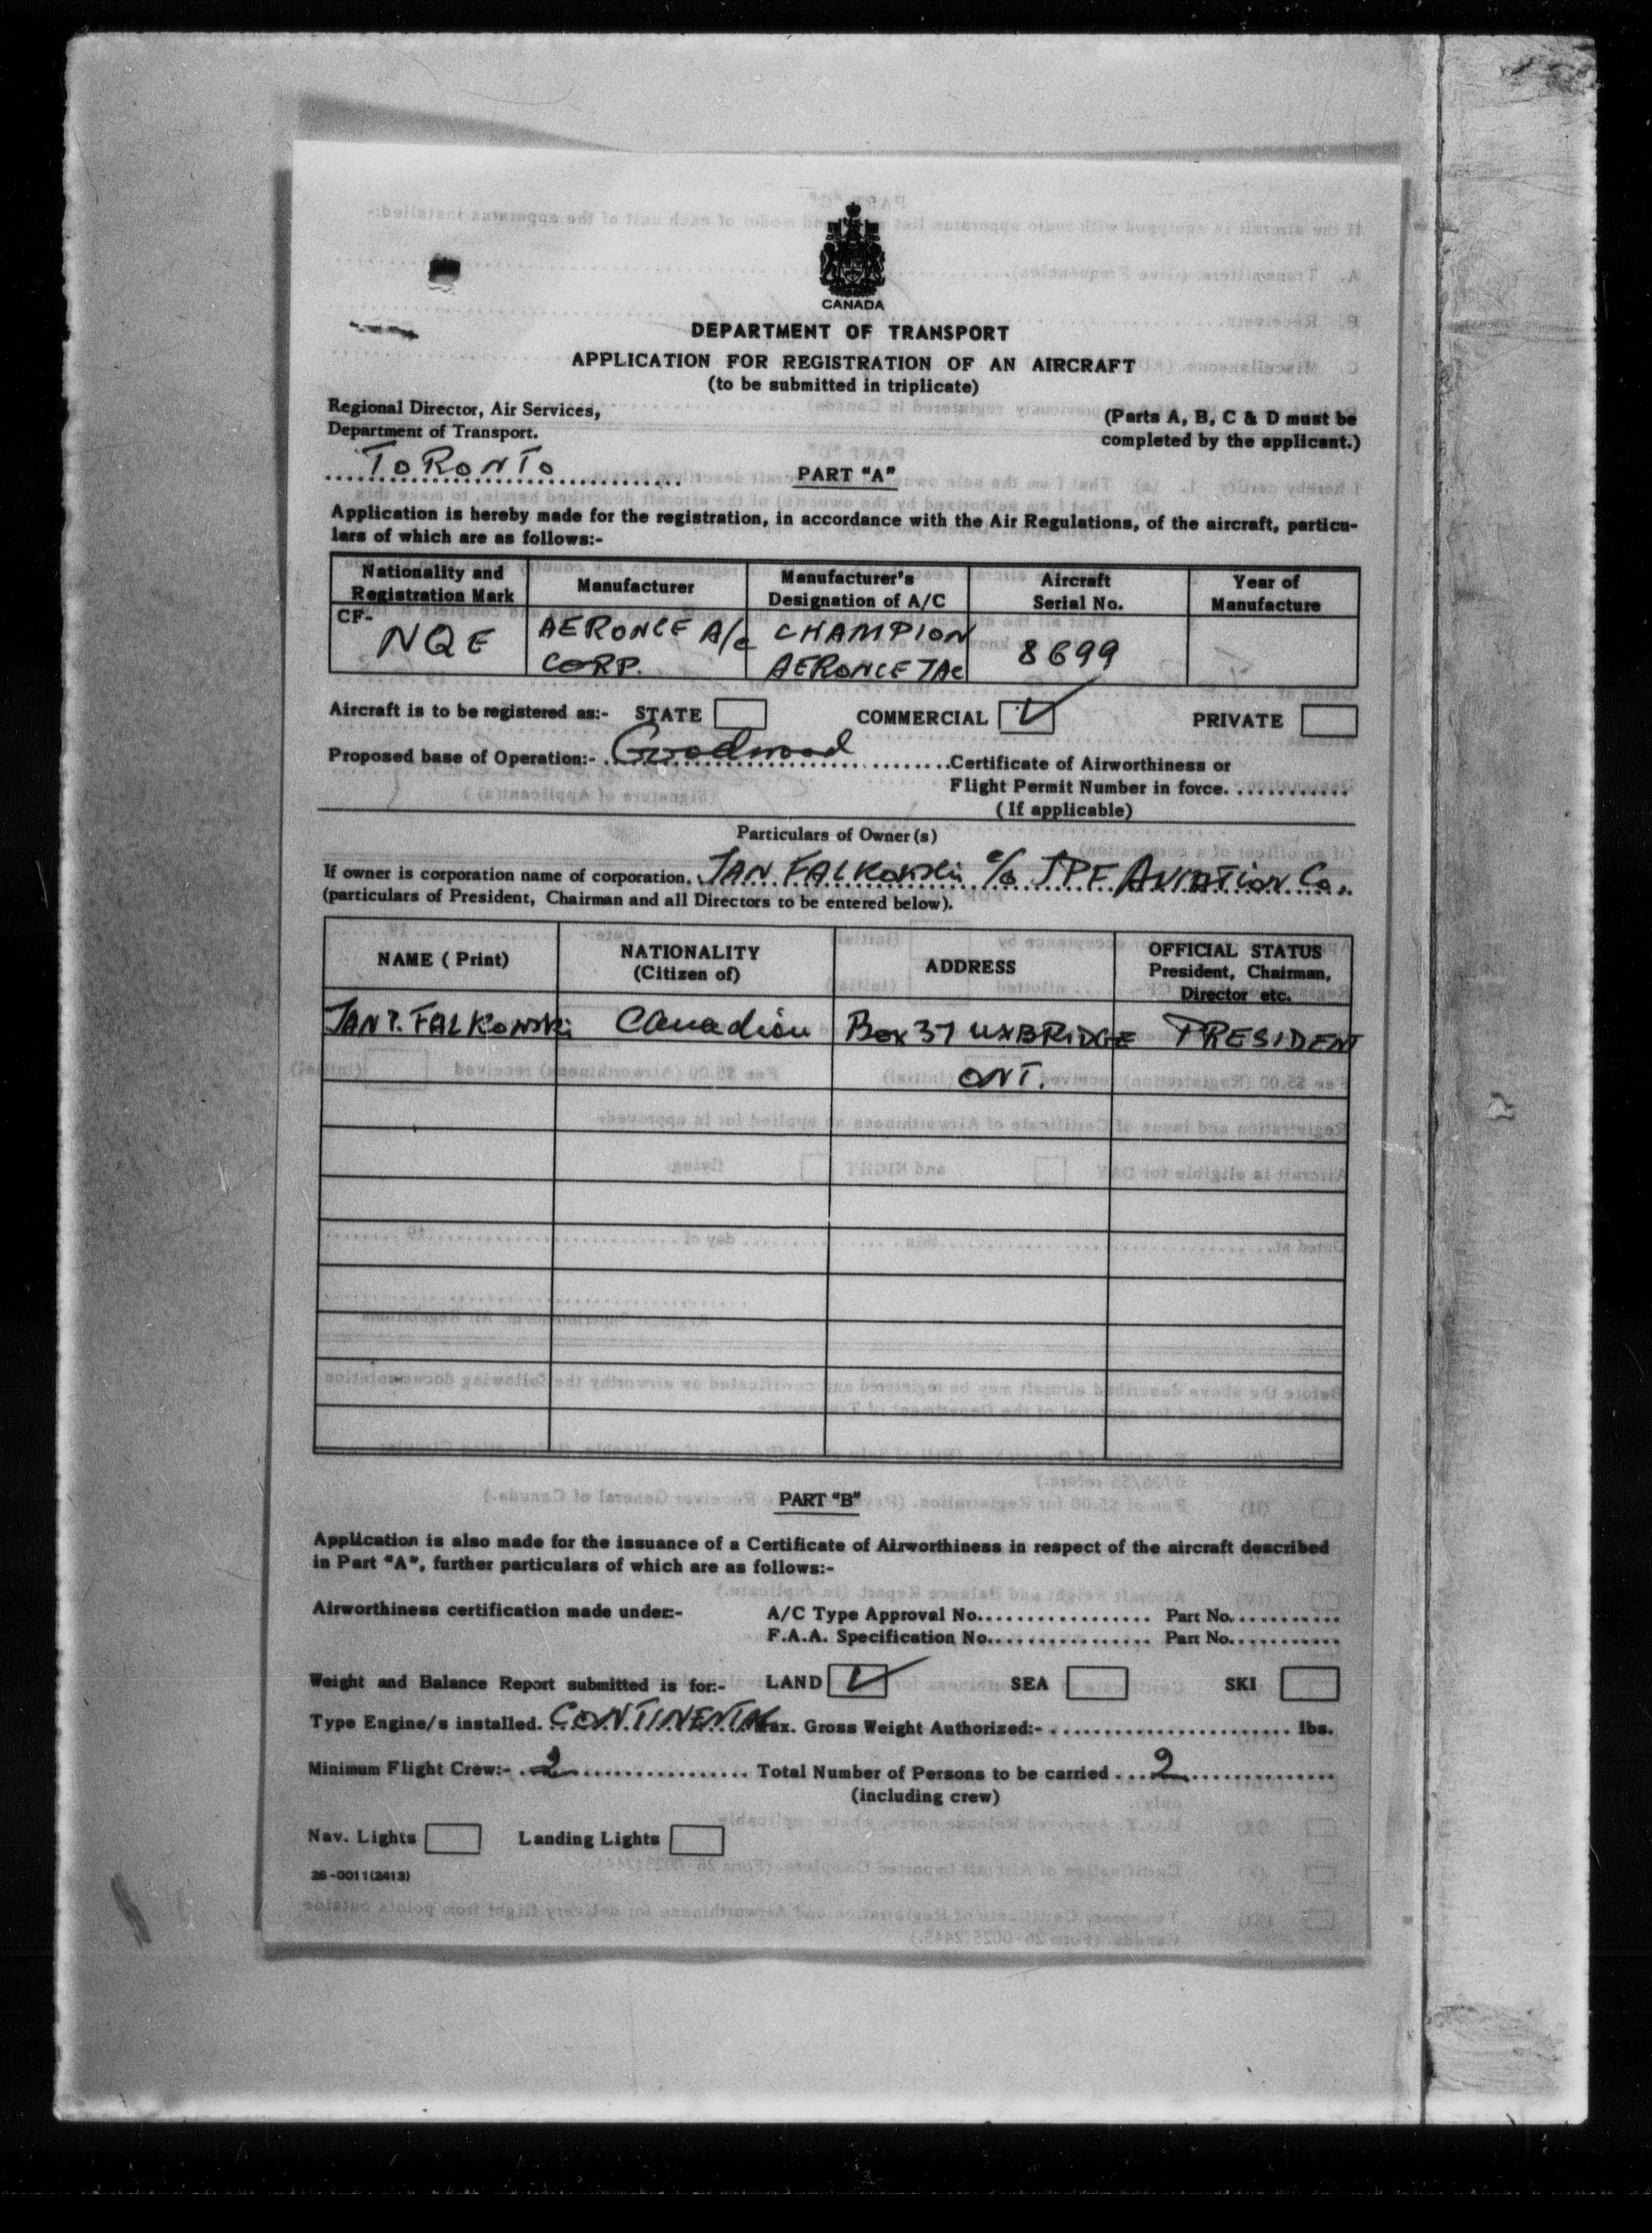 CANADA
DEPARTMENT OF TRANSPORT
APPLICATION FOR REGISTRATION OF AN AIRCRAFT
(to be submitted in triplicate)
Regional Director, Air Services,
Department of Transport.
(Parts A, B, C & D must be
completed by the applicant.)
TORONTO
PART "A"
Application is hereby made for the registration, in accordance with the Air Regulations, of the aircraft, particu-
lars of which are as follows:-
Nationality and Registration Mark Manufacturer Manufacturer's Designation of A/C Aircraft Serial No. Year of Manufacture
CF- NQE AERONCE A/C CORP. CHAMPION AERONCE 7AC 8699
Aircraft is to be registered as:- STATE COMMERCIAL PRIVATE
Proposed base of Operation:- Goodwood
Certificate of Airworthiness or
Flight Permit Number in force.
(If applicable)
Particulars of Owner(s)
If owner is corporation name of corporation. JAN FALKOWSKI c/o JPF AVIATION Co.
(particulars of President, Chairman and all Directors to be entered below).
NAME ( Print) NATIONALITY (Citizen of) ADDRESS OFFICIAL STATUS President, Chairman, Director etc.
JAN P. FALKOWSKI Canadian Box 37 UXBRIDGE PRESIDENT
ONT.
PART "B"
Application is also made for the issuance of a Certificate of Airworthiness in respect of the aircraft described
in Part "A", further particulars of which are as follows:-
Airworthiness certification made under:- A/C Type Approval No. Part No.
F.A.A. Specification No. Part No.
Weight and Balance Report submitted is for:- LAND SEA SKI
Type Engine/s installed. CONTINENTAL Max. Gross Weight Authorized:- lbs.
Minimum Flight Crew:- 2 Total Number of Persons to be carried 2
(including crew)
Nav. Lights Landing Lights
26-0011(2413)